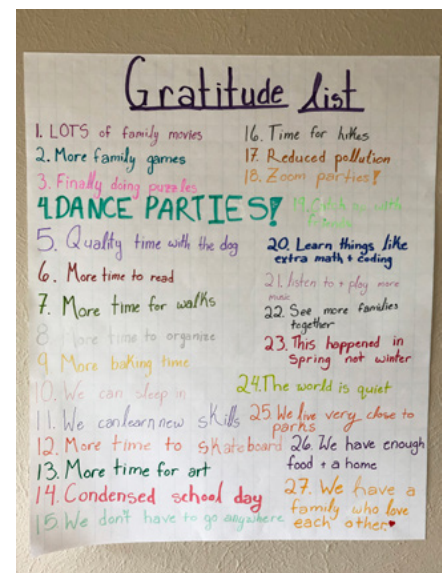 Gratitude list
1. LOTS of family movies
2. More family games
3. Finally doing puzzles
4. DANCE PARTIES!
5. Quality time with the dog
6. More time to read
7. More time for walks
8 More time to organize
9 More baking time
10. We can sleep in
11. We can learn new skills
12. More time to skateboard
13. More time for art
14. Condensed school day
15. We don't have to go anywhere
16. Time for hikes
17. Reduced pollution
18. Zoom parties!
19. Catch up with
friends
20. Learn things like
extra math + coding
21. listen to + play more
music
22. See more families
together
23. This happened in
Spring not winter
24. The world is quiet
25 We live very close to
parks
26. We have enough
food + a home
27. We have a
family who love
each other.♥